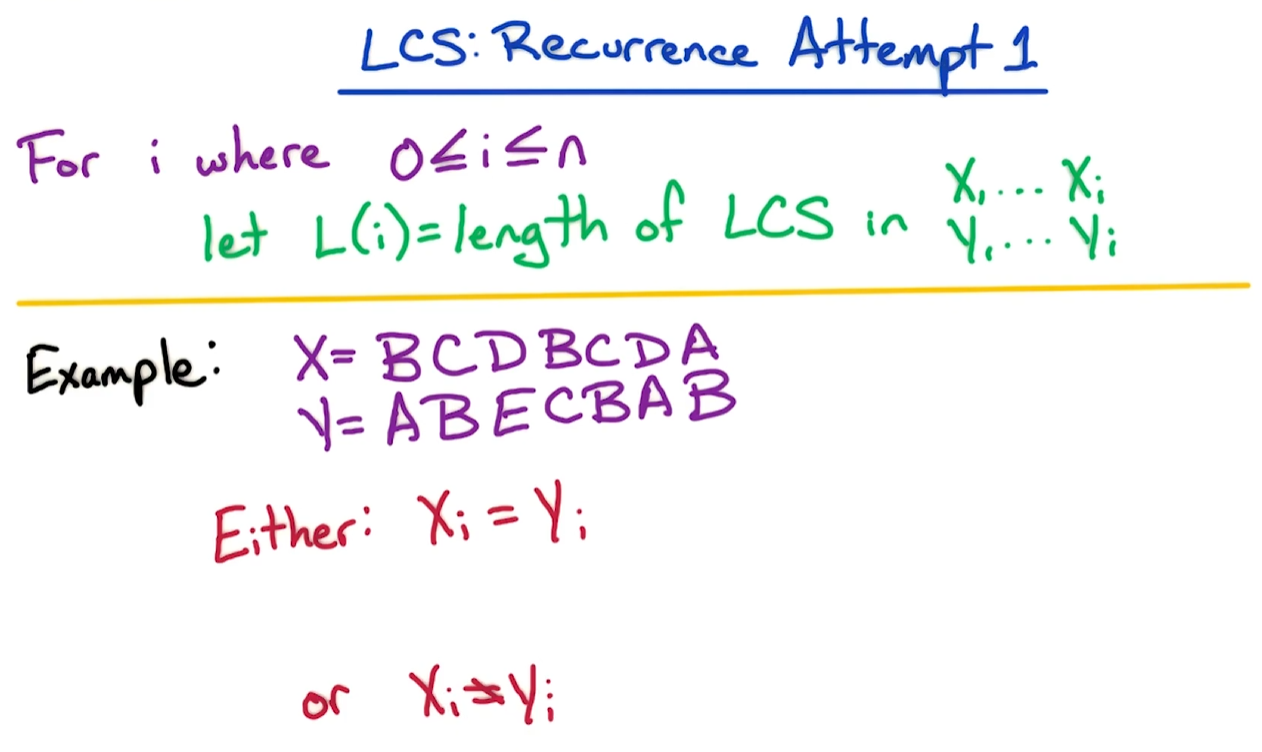 LCS: Recurrence Attempt 1
For i where 0≤i≤n
let L(i)=length of LCS in X₁... Xᵢ
Y₁... Yᵢ
Example: X= BCDBCDA
Y= ABECBAB
Either: Xᵢ = Yᵢ
or Xᵢ≠Yᵢ